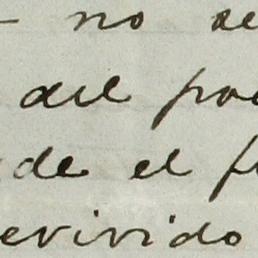 no se
del po
de el f
evivido